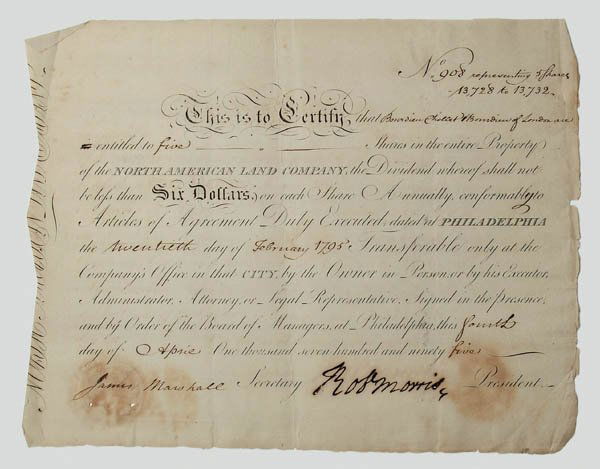 No. 908 representing 5 Shares
13,728 to 13,732.
This is to Certify, that Bourdieu Chollet & Bourdieu of London are
is entitled to five Shares in the entire Property
of the NORTH AMERICAN LAND COMPANY, the Dividend whereof shall not
be less than Six Dollars, on each Share Annually, conformably to
Articles of Agreement Duly Executed, dated at PHILADELPHIA
the twentieth day of February 1795 Transferable only at the
Company's Office in that CITY, by the Owner in Person, or by his Executor,
Administrator, Attorney, or Legal Representative. Signed in the presence,
and by Order of the Board of Managers, at Philadelphia, this fourth
day of April One thousand seven hundred and ninety five
James Marshall Secretary Robt Morris, President